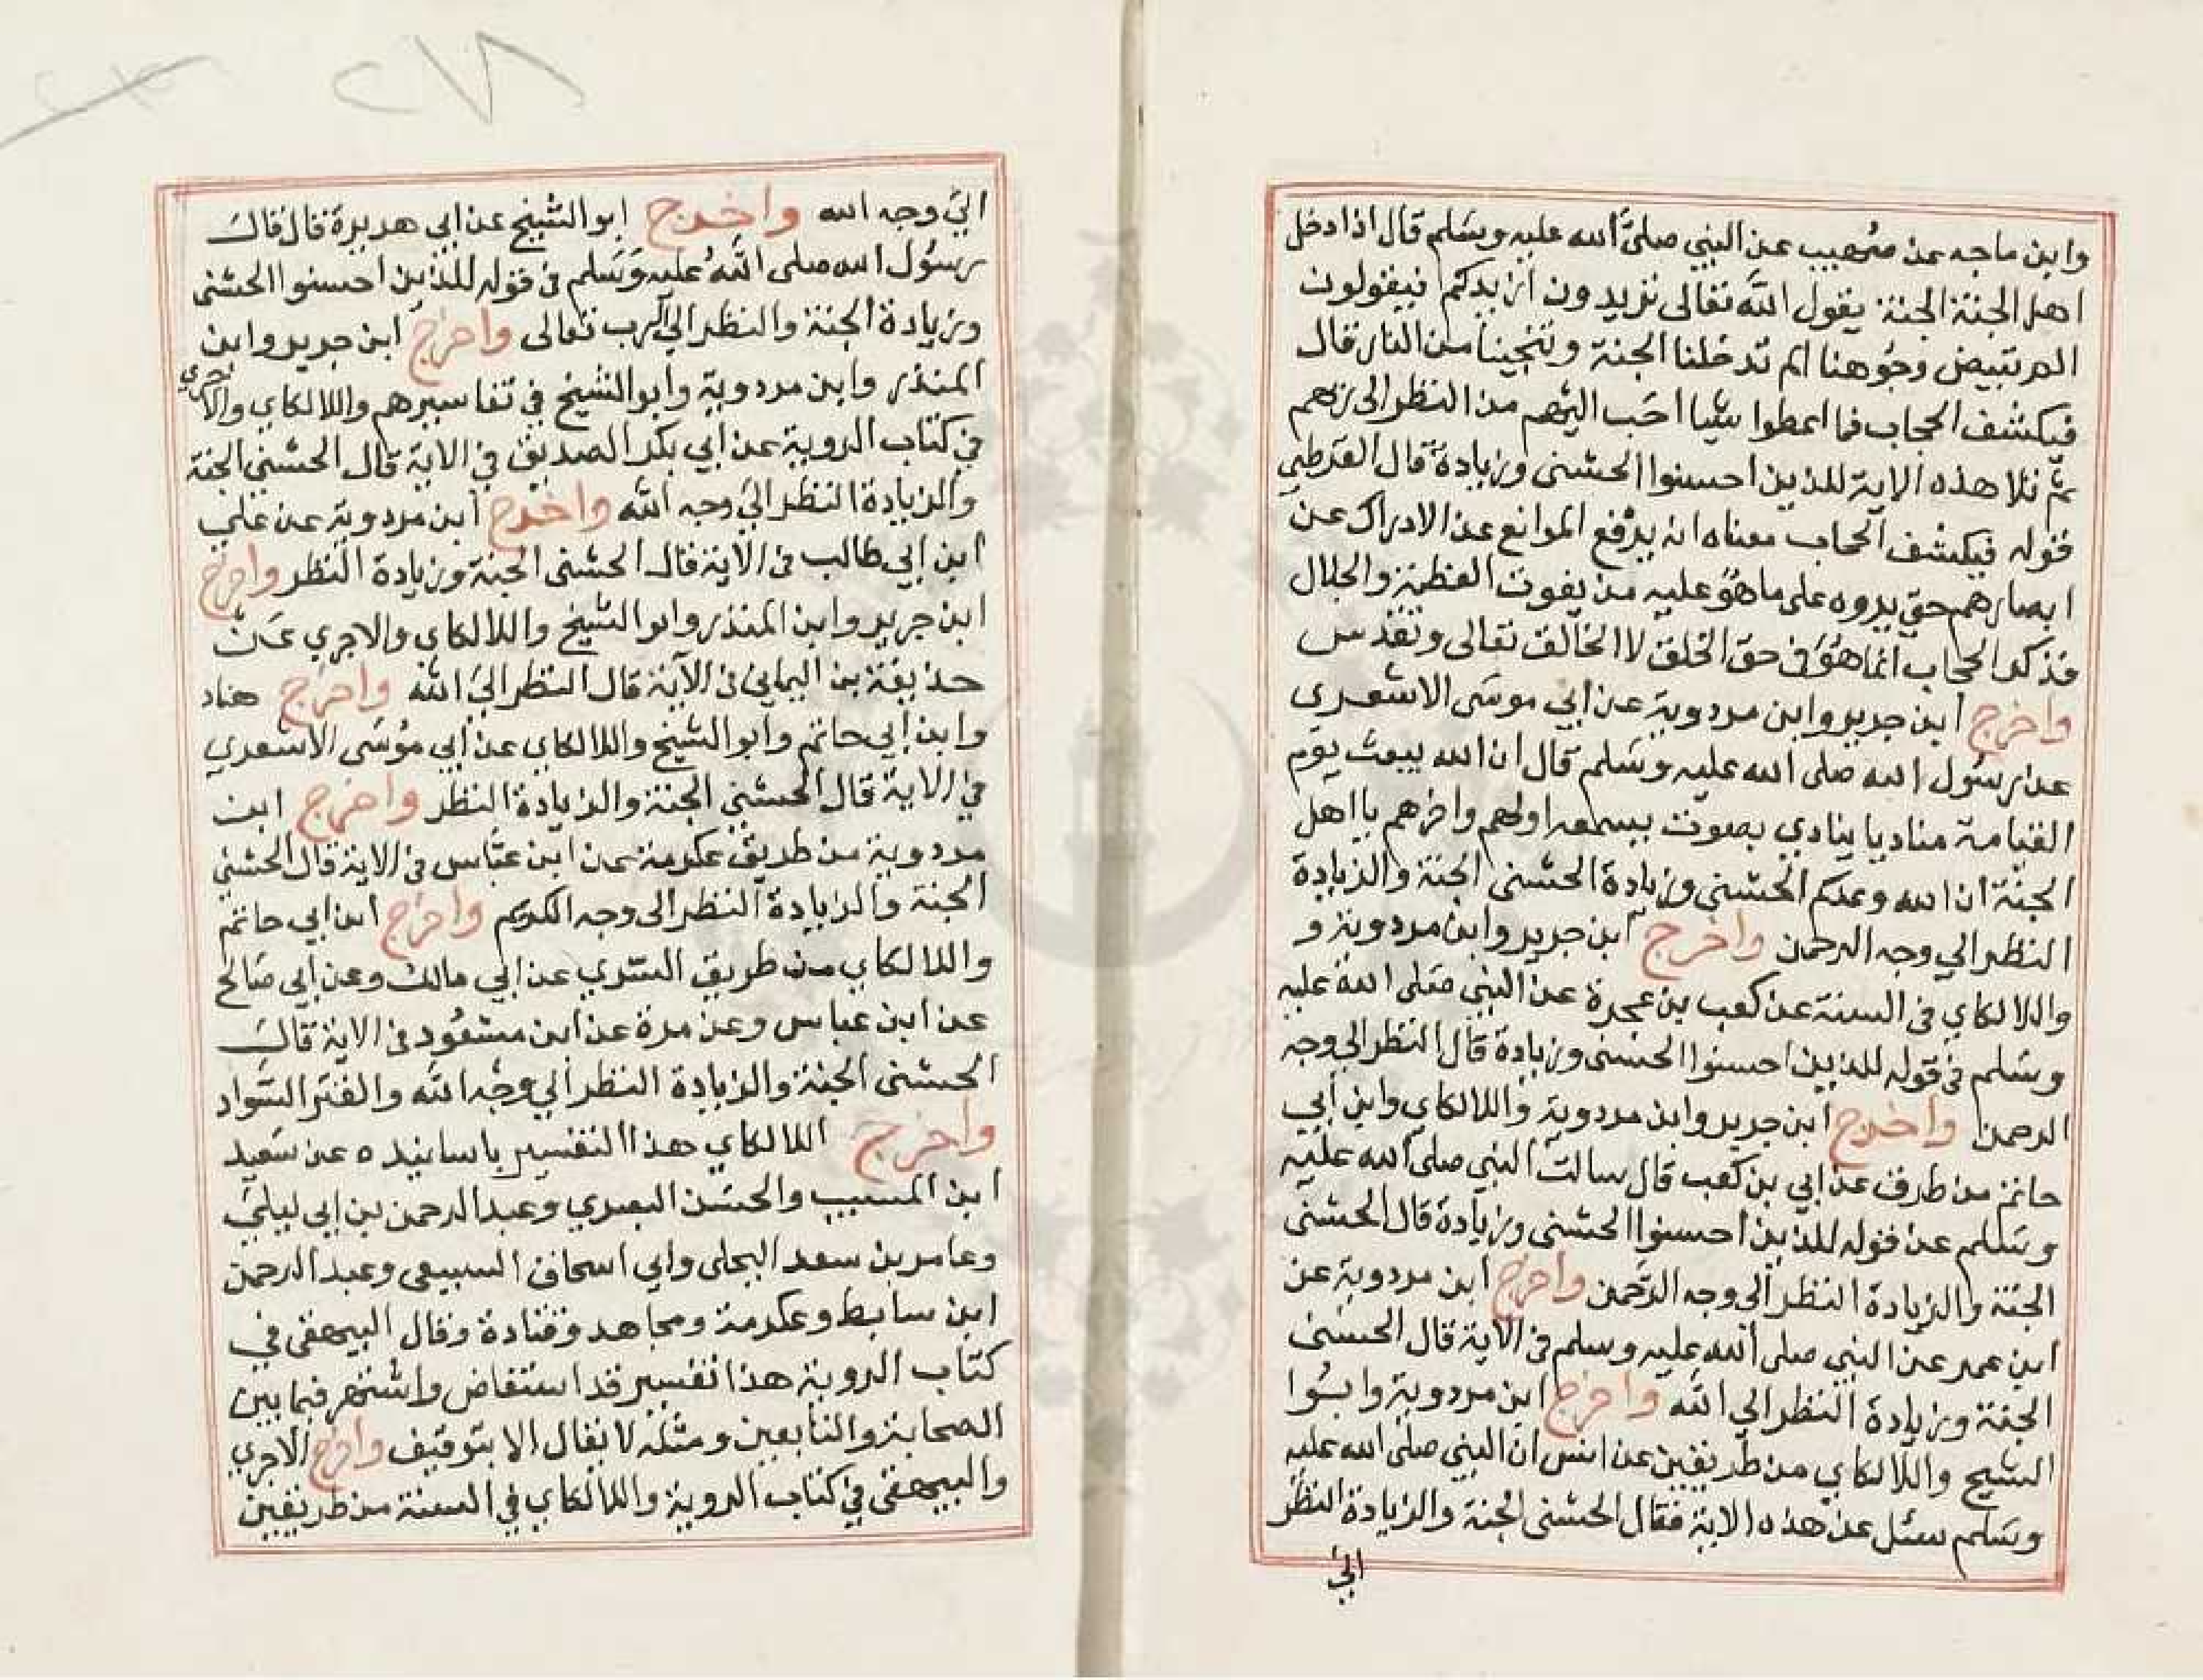 وابن ماجه عن صُهيب عن النبي صلى الله عليه وسلم قال اذا دخل
اهل الجنة الجنة يقول الله تعالى تريدون ازيدكم فيقولون
الم تبيض وجوهنا الم تدخلنا الجنة وتنجينا من النار قال
فيكشف الحجاب فما اعطوا شيا احب اليهم من النظر الى ربهم
ثم تلا هذه الاية للذين احسنوا الحسنى وزيادة قال القرطبي
قوله فيكشف الحجاب معناه انه يرفع الموانع عن الادراك عن
ابصارهم حتى يروه على ما هو عليه من نعوت العظمة والجلال
فذكر الحجاب انما هو في حق الخلق لا الخالق تعالى وتقدس
واخرج ابن جرير وابن مردوية عن ابي موسى الاشعري
عن رسول الله صلى الله عليه وسلم قال ان الله يبعث يوم
القيامة مناديا ينادي بصوت يسمعه اولهم واخرهم يا اهل
الجنة ان الله وعدكم الحسنى وزيادة الحسنى الجنة والزيادة
النظر الي وجه الرحمن واخرج ابن جرير وابن مردوية و
واللالكاي في السنة عن كعب بن عجرة عن النبي صلى الله عليه
وسلم في قوله للذين احسنوا الحسنى وزيادة قال النظر الى وجه
الرحمن واخرج ابن جرير وابن مردوية واللالكاي وابن ابي
حاتم من طرق عن ابي بن كعب قال سالت النبي صلى الله عليه
وسلم عن قوله للذين احسنوا الحسنى وزيادة قال الحسنى
الجنة والزيادة النظر الي وجه الرحمن واخرج ابن مردوية عن
ابن عمر عن النبي صلى الله عليه وسلم في الاية قال الحسنى
الجنة وزيادة النظر الي الله واخرج ابن مردوية وابوا
الشيخ واللالكاي من طريقين عن انس ان النبي صلى الله عليه
وسلم سئل عن هذه الاية فقال الحسنى الجنة والزيادة النظر
الي
الي وجه الله واخرج ابو الشيخ عن ابي هريرة قال قال
رسول الله صلى الله عليه وسلم في قوله للذين احسنوا الحسنى
وزيادة الجنة والنظر الي الرب تعالى واخرج ابن جرير وابن
المنذر وابن مردوية وابو الشيخ في تفاسيرهم واللالكاي والاجري
في كتاب الروية عن ابي بكر الصديق في الاية قال الحسنى الجنة
والزيادة النظر الي وجه الله واخرج ابن مردوية عن علي
ابن ابي طالب في الاية قال الحسنى الجنة وزيادة النظر واخرج
ابن جرير وابن المنذر وابو الشيخ واللالكاي والاجري عن
حذيفة بن اليماني في الاية قال النظر الي الله واخرج هناد
وابن ابي حاتم وابو الشيخ واللالكاي عن ابي موسى الاشعري
في الاية قال الحسنى الجنة والزيادة النظر واخرج ابن
مردوية من طريق عكرمة عن ابن عباس في الاية قال الحسنى
الجنة والزيادة النظر الى وجه الكريم واخرج ابن ابي حاتم
واللالكاي من طريق السدي عن ابي مالك وعن ابي صالح
عن ابن عباس وعن مرة عن ابن مسعود في الاية قال
الحسنى الجنة والزيادة النظر الي وجه الله والقتر السواد
واخرج اللالكاي هذا التفسير باسانيده عن سعيد
ابن المسيب والحسن البصري وعبد الرحمن بن ابي ليلي
وعامر بن سعد البجلى وابي اسحاق السبيعي وعبد الرحمن
ابن سابط وعكرمة ومجاهد وقتادة وقال البيهقى في
كتاب الروية هذا تفسير قد استفاض واشتهر فيما بين
الصحابة والتابعين ومثله لا يقال الا بتوقيف واخرج الاجري
والبيهقى في كتاب الروية واللالكاي في السنة من طريقين